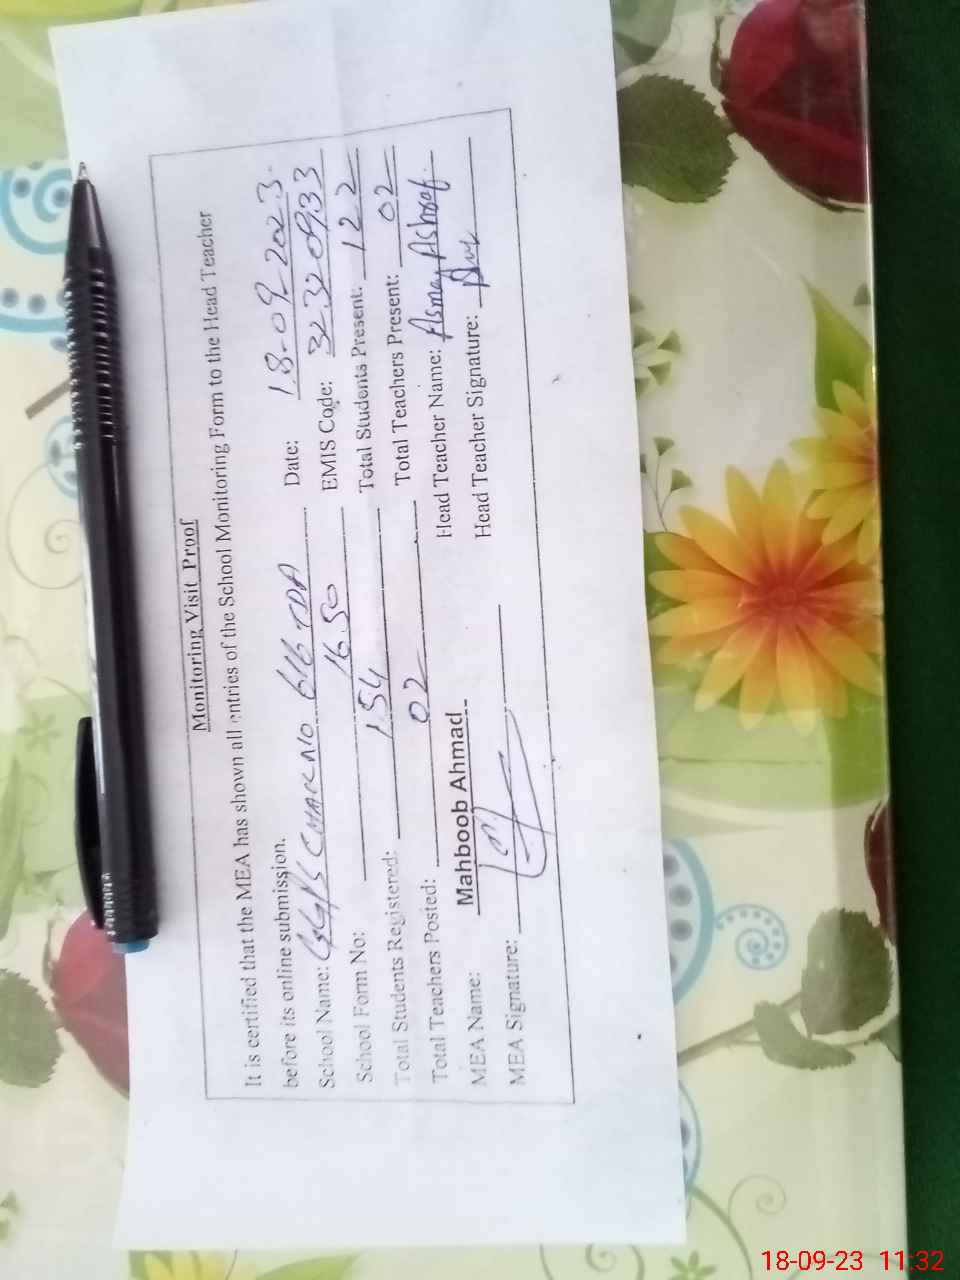 Monitoring Visit Proof
It is certified that the MEA has shown all entries of the School Monitoring Form to the Head Teacher
before its online submission.
School Name: GGPS CHAK NO 616 TDA Date: 18-09-2023
School Form No: 1650 EMIS Code: 32320933
Total Students Registered: 154 Total Students Present: 122
Total Teachers Posted: 02 Total Teachers Present: 02
MEA Name: Mahboob Ahmad Head Teacher Name: Asma Ashraf
MEA Signature: Head Teacher Signature:
18-09-23 11:32